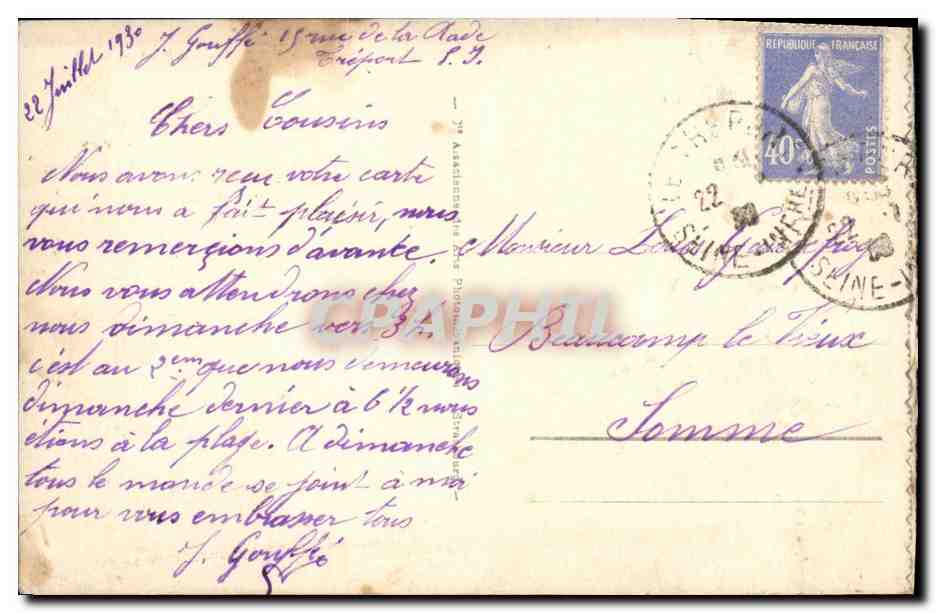 22 Juillet 1930
J. Gouffé 15 rue de la Rade
Tréport S. I.
Chers Cousins
Nous avons reçu votre carte
qui nous a fait plaisir, nous
vous remerçions d'avance.
Nous vous attendrons chez
nous dimanche vers 3 h.
c'est au 2em que nous demeurons
dimanche dernier à 6 1/2 nous
étions à la plage. A dimanche
tous le monde se joint à moi
pour vous embrasser tous
J. Gouffé
Monsieur
Beaucamp le Vieux
Somme
REPUBLIQUE FRANÇAISE
40c
POSTES
LE TREPORT
22
30
SEINE-INFRE
SEINE-IN
CPAPHIL